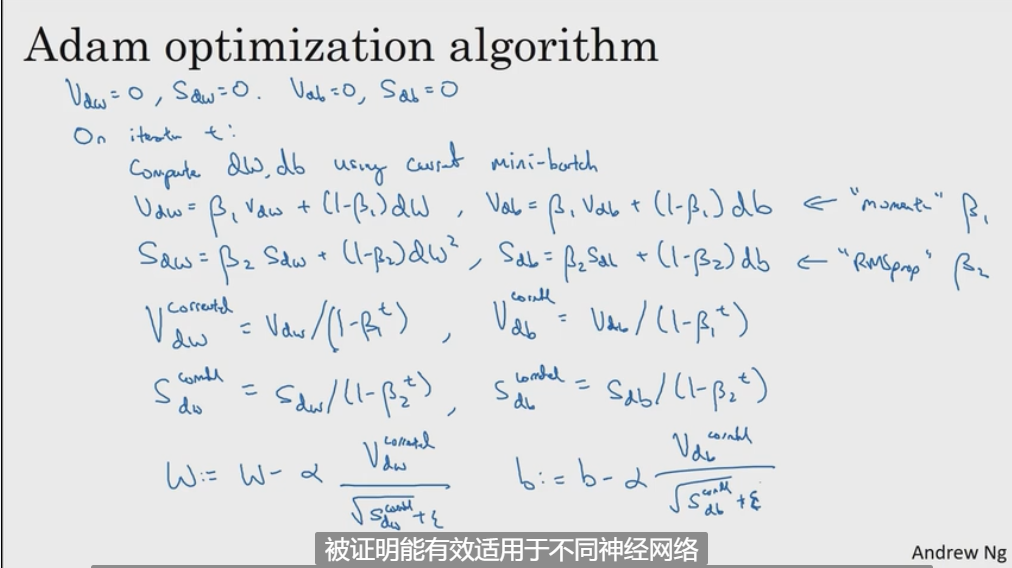 Adam optimization algorithm
V_dw = 0, S_dw = 0. V_db = 0, S_db = 0
On iteration t:
Compute dW, db using current mini-batch
V_dw = β₁ V_dw + (1-β₁) dW, V_db = β₁ V_db + (1-β₁) db ← "moment" β₁
S_dw = β₂ S_dw + (1-β₂) dW², S_db = β₂ S_db + (1-β₂) db ← "RMSprop" β₂
V_dw^corrected = V_dw / (1-β₁^t), V_db^corrected = V_db / (1-β₁^t)
S_dw^corrected = S_dw / (1-β₂^t), S_db^corrected = S_db / (1-β₂^t)
W := W - α V_dw^corrected / (√S_dw^corrected + ε) b := b - α V_db^corrected / (√S_db^corrected + ε)
被证明能有效适用于不同神经网络
Andrew Ng